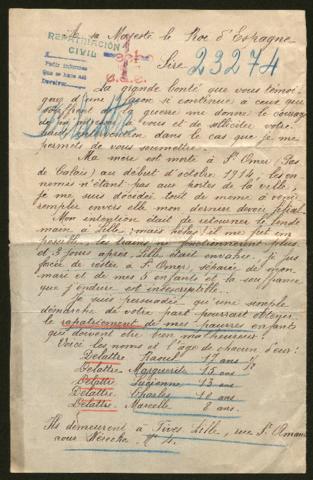 A sa Majesté le Roi d'Espagne
REPATRIACIÓN
CIVIL
Pedir informes
Sire 23274
La grande bonté que vous témoi
gnez d'une façon si continue à ceux que
font la guerre me donne le courage
de m'adresser à vous et de solliciter votre
haute dans le cas que je me
permets de vous soumettre.
Ma mère est morte à St Omer (Pas
de Calais) au début d'octobre 1914, les en
nemis n'étant pas aux portes de la ville,
je me suis décidée tout de même à venir
remplir envers elle mon dernier devoir filial.
Mon intention était de retourner le lende
main à Lille, mais hélas! il me fut im
possible, les trains ne fonctionnèrent plus
et 3 jours après Lille était envahie. Je suis
forcée de rester à St Omer, séparée de mon
mari et de mes 5 enfants et la souffrance
que j'endure est indescriptible.
Je suis persuadée qu'une simple
démarche de votre part pourrait obtenir
le rapatriement de mes pauvres enfants
qui doivent être bien malheureux!
Voici les noms et l'âge de chacun d'eux:
Delattre Raoul 17 ans
Delattre Marguerite 15 ans
Delattre Lucienne 13 ans
Delattre Charles ans
Delattre Marcelle 8 ans.
Ils demeurent à Fives Lille, rue St Amand
cour N° 4.